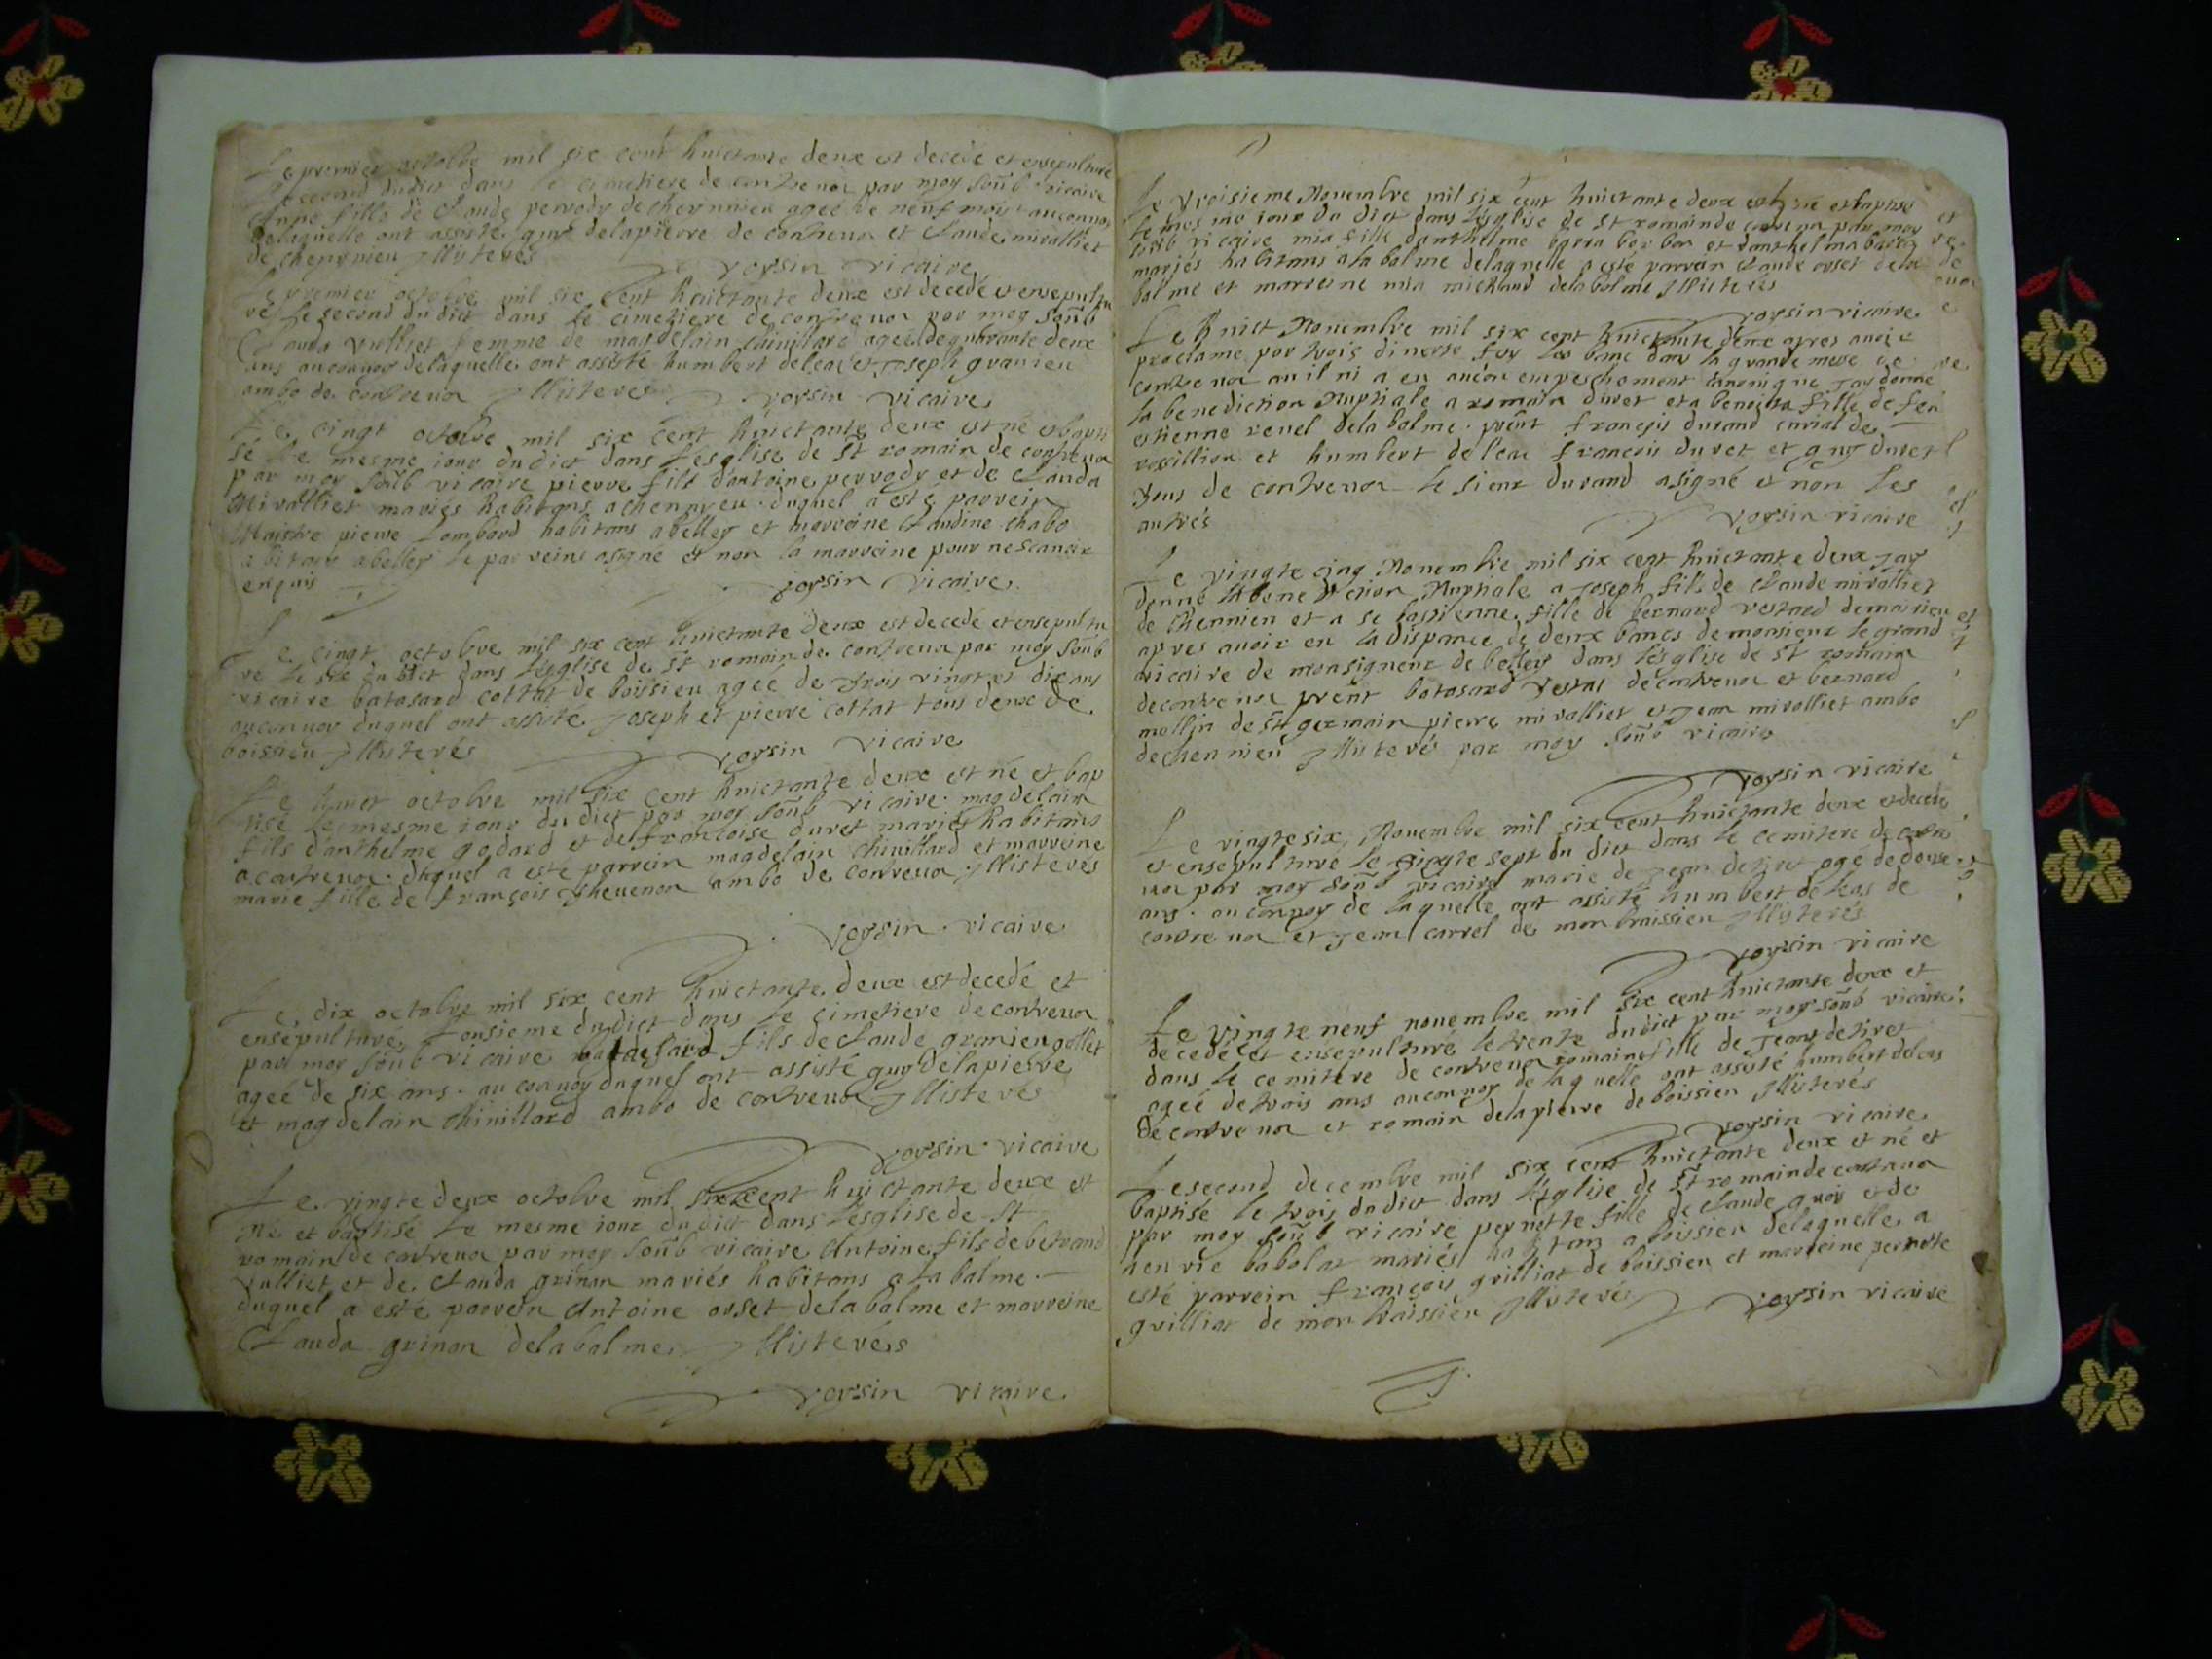 Le premier octobre mil six cent huictante deux est decedé et ensepulturé
le second dudict dans le cimetiere de contrevoz par moy soub vicaire
fille de Claude perrody de cheynnieu ageé de neuf moys au convoy
delaquelle ont assisté guy delapierre de contrevoz et Claude miralliet
de cheynnieu Illiterés
voysin vicaire
Le premier octobre mil six cent huictante deux est decedé et ensepultu
ré le second dudict dans le cimetiere de contrevoz par moy soub
Clauda vulliet femme de magdelain chinillard ageé de quarante deux
ans au convoy delaquelle ont assisté humbert deleas et Joseph granieu
ambo de contrevoz Illiteres
voysin vicaire
Le cinqt octobre mil six cent huictante deux est né et bapti
sé le mesme iour dudict dans l'esglise de st romain de contrevoz
par moy soub vicaire pierre fils d'antoine perrody et de Clauda
Miralliet mariés habitans a chennieu duquel a esté parrein
Maistre pierre Lombard habitans a belley et marreine Claudine chabo
abitans a belley le parrein a signé et non la marreine pour ne scavoir
enquis
voysin vicaire
Le cinqt octobre mil six cent huictante deux est decedé et ensepultu
ré le six dudict dans l'esglise de st romain de contrevoz par moy soub
vicaire batasard cottat de boissieu ageé de trois vingt et dix ans
au convoy duquel ont assisté Joseph et pierre cottat tous deux de
boissieu Illiterés
voysin vicaire
Le huict octobre mil six cent huictante deux est né et bap
tisé le mesme iour dudict par moy soub vicaire magdelain
fils d'anthelme godard et de francoise duret mariés habitans
a contrevoz duquel a esté parrein magdelain chinillard et marreine
marie fille de françois thevenon ambo de contrevoz Illisterés
voysin vicaire
Le dix octobre mil six cent huictante deux est decedé et
ensepulturé Lonsieme dudict dans le cimetiere de contrevoz
par moy soub vicaire fils de claude granieu gollet
ageé de six ans au convoy duquel ont assisté guy delapierre
et magdelain chinillard ambo de contrevoz Illisterés
voysin vicaire
Le vingte deux octobre mil six cent huictante deux est
Né et baptisé le mesme iour dudict dans l'esglise de st
romain de contrevoz par moy soub vicaire Antoine fils de betrand
vulliet et de Clauda grinon mariés habitans a la balme
duquel a esté parrein Antoine orset delabalme et marreine
Clauda grinon delabalme Illisterés
voysin vicaire
Le troisieme Novembre mil six cent huictante deux est né et baptisé
le mesme iour du dict dans l'esglise de st romain de contrevoz par moy
soub vicaire mia fille danthelme barra et danthelma
mariés habitans a la balme delaquelle a esté parrein claude orset dela
balme et marreine mia michaud delabalme Illiterés
voysin vicaire
Le huict Novembre mil six cent huictante deux apres avoir
proclamé par trois diverse foy les banc dans la grande messe de
contrevoz ou il ni a eu aucun empeschement canonique Jay donné
la benediction Nuptiale a romain duret et a benoista fille de feu
estienne revel delabalme prént françois durand curial de
rossillion et humbert deleas françois duret et guy duret
tous de contrevoz le sieur durand a signé et non les
autrés
voysin vicaire
Le vingte cinq Novembre mil six cent huictante deux Jay
donné la benediction Nuptiale a Joseph fils de Claude miralliet
de chennieu et a sebastienne fille de bernard
apres avoir eu la dispance de deux bancs de monsieur le grand
vicaire de monsigneur de belley dans l'esglise de st romain
de contrevoz prént batasard de contrevoz et bernard
mollin de st germain pierre miralliet et Jean miralliet ambo
de chennieu Illiterés par moy soub vicaire
voysin vicaire
Le vingte six Novembre mil six cent huictante deux et decedé
et ensepulturé le vingte sept du dict dans le cemitere de contre
voz par moy soub vicaire marie de Jean detiret agé de douse
ans au convoy de laquelle ont assisté humbert deleas de
contrevoz et Jean carrel de montbraissieu Illiterés
voysin vicaire
Le vingte neuf novembre mil six cent huictante deux et
decedé et ensepulturé le trente dudict par moy soub vicaire
dans le cemitere de contrevoz romaine fille de Jean detiret
ageé de trois ans au convoy de laquelle ont assisté humbert deleas
de contrevoz et romain delapierre de boissieu Illiterés
voysin vicaire
Le second decembre mil six cent huictante deux et né et
baptisé le trois dudict dans l'esglise de st romain de contrevoz
par moy soub vicaire pernette fille de claude et de
henrie babolat mariés habitans a boissieu delaquelle a
esté parrein françois grilliat de boissieu et marreine pernette
grilliat de montbraissieu Illiterés
voysin vicaire